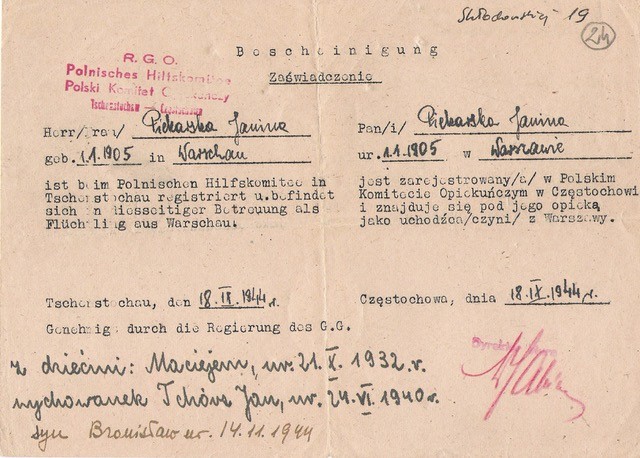 Skłodowskiej 19
24
Bescheinigung
Zaświadczenie
R.G.O.
Polnisches Hilfskomitee
Polski Komitet Opiekuńczy
Tschenstochau - Częstochowa
Herr/Frau/ Piekarska Janina
geb. 1.1.1905 in Warschau
ist beim Polnischen Hilfskomitee in
Tschenstochau registriert u.befindet
sich in diesseitiger Betreuung als
Flüchtling aus Warschau.
Tschenstochau, den 18.IX.1944 r.
Genehmigt durch die Regierung des G.G.
Pan/i/ Piekarska Janina
ur. 1.1.1905 w Warszawie
jest zarejestrowany/a/ w Polskim
Komitecie Opiekuńczym w Częstochowi
i znajduje się pod jego opieką
jako uchodźca/czyni/ z Warszawy.
Częstochowa, dnia 18.IX.1944 r.
z dziećmi: Maciejem, ur. 21.X.1932.r.
wychowanek Tchórz Jan, ur. 24.VI.1940r.
syn Bronisław ur. 14.11.1944